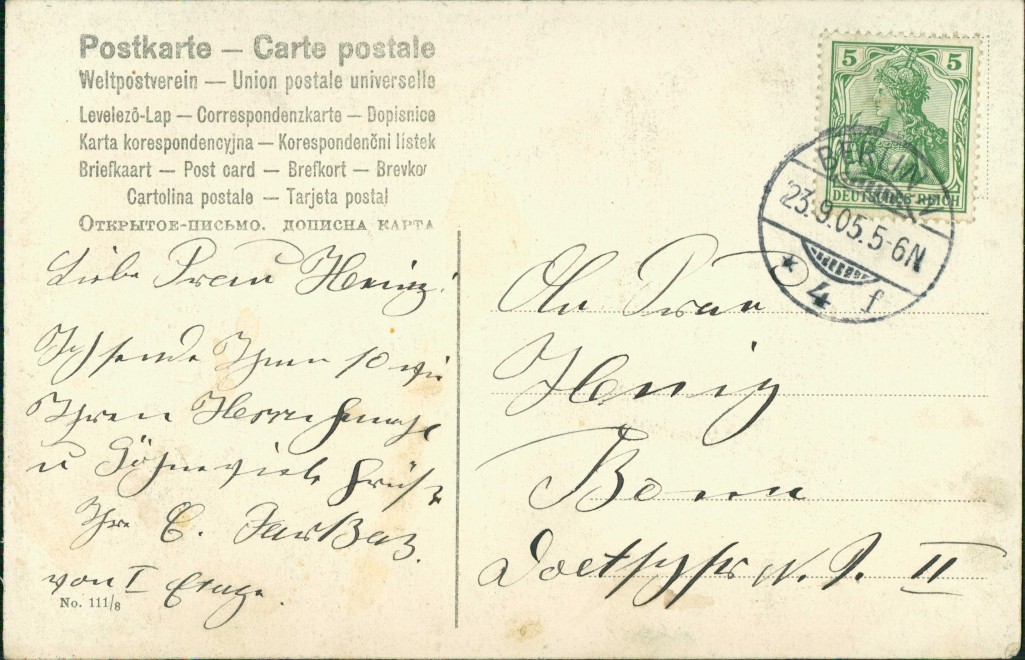 Postkarte – Carte postale
Weltpostverein — Union postale universelle
Levelezö-Lap – Correspondenzkarte – Dopisnice
Karta korespondencyjna – Korespondenční lístek
Briefkaart – Post card – Brefkort – Brevkor
Cartolina postale – Tarjeta postal
Открытое-письмо. дописна карта
Liebe Frau Heinig!
Ich sende Ihnen so wie
Ihren Herrn Gemahl
u Söhne viele Grüße
Ihre E.
von I Etage.
No. 111/8
5 5
DEUTSCHES REICH
BERLIN
23.9.05.5-6N
* 4 f
An Frau
Heinig
Bonn
II